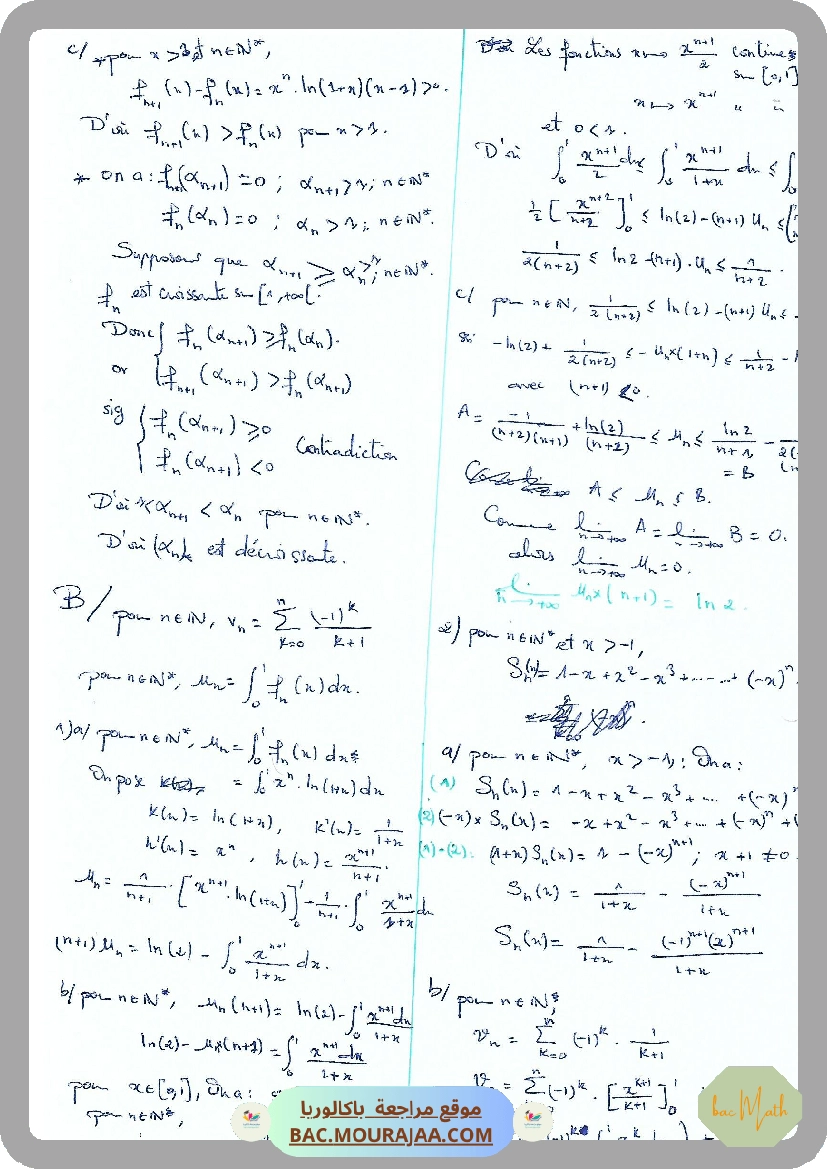 c/ * pour x > 1 et n ∈ ℕ*,
f_{n+1}(x) - f_n(x) = x^n . ln(1+x)(x-1) > 0.
D'où f_{n+1}(x) > f_n(x) pour x > 1.
* on a : f_{n+1}(α_{n+1}) = 0 ; α_{n+1} > 1 ; n ∈ ℕ*
f_n(α_n) = 0 ; α_n > 1 ; n ∈ ℕ*.
Supposons que α_{n+1} ≥ α_n > 1 ; n ∈ ℕ*.
f_n est croissante sur [1, +∞[.
Donc { f_n(α_{n+1}) ≥ f_n(α_n).
or { f_{n+1}(α_{n+1}) > f_n(α_{n+1})
sig { f_n(α_{n+1}) ≥ 0
f_n(α_{n+1}) < 0 Contradiction
D'où * α_{n+1} < α_n pour n ∈ ℕ*.
D'où (α_n) est décroissante.
B/ pour n ∈ ℕ, v_n = Σ_{k=0}^{n} (-1)^k / (k+1)
pour n ∈ ℕ*, u_n = ∫_0^1 f_n(x) dx.
1) a/ pour n ∈ ℕ*, u_n = ∫_0^1 f_n(x) dx
On pose = ∫_0^1 x^n . ln(1+x) dx
k(x) = ln(1+x), k'(x) = 1/(1+x)
h'(x) = x^n, h(x) = x^{n+1}/(n+1).
u_n = 1/(n+1) . [x^{n+1} . ln(1+x)]_0^1 - 1/(n+1) . ∫_0^1 x^{n+1}/(1+x) dx
(n+1) u_n = ln(2) - ∫_0^1 x^{n+1}/(1+x) dx.
b/ pour n ∈ ℕ*, u_n(n+1) = ln(2) - ∫_0^1 x^{n+1} dx/(1+x)
ln(2) - u_n × (n+1) = ∫_0^1 x^{n+1} dx/(1+x)
pour x ∈ [0,1], On a :
pour n ∈ ℕ*,
Les fonctions x ↦ x^{n+1}/2 continues
sur [0,1]
x ↦ x^{n+1} " "
et 0 < 1.
D'où ∫_0^1 x^{n+1}/2 dx ≤ ∫_0^1 x^{n+1}/(1+x) dx ≤ ∫_0
1/2 [x^{n+2}/(n+2)]_0^1 ≤ ln(2) - (n+1) u_n ≤
1/(2(n+2)) ≤ ln 2 - (n+1) . u_n ≤ 1/(n+2).
c/ pour n ∈ ℕ, 1/(2(n+2)) ≤ ln(2) - (n+1) u_n ≤
-ln(2) + 1/(2(n+2)) ≤ -u_n × (1+n) ≤ 1/(n+2) -
avec (n+1) 0.
A = -1/((n+2)(n+1)) + ln(2)/(n+2) ≤ u_n ≤ ln 2/(n+1) -
= B
A ≤ u_n ≤ B.
Comme lim_{n→+∞} A = lim_{n→+∞} B = 0.
alors lim_{n→+∞} u_n = 0.
lim_{n→+∞} u_n × (n+1) = ln 2.
2) pour n ∈ ℕ* et x > -1,
S_n(x) = 1 - x + x² - x³ + ... + (-x)^n
a/ pour n ∈ ℕ*, x > -1 ; On a :
(1) S_n(x) = 1 - x + x² - x³ + ... + (-x)^n
(2) (-x) × S_n(x) = -x + x² - x³ + ... + (-x)^n + (
(1)-(2): (1+x) S_n(x) = 1 - (-x)^{n+1} ; x + 1 ≠ 0
S_n(x) = 1/(1+x) - (-x)^{n+1}/(1+x)
S_n(x) = 1/(1+x) - (-1)^{n+1}(x)^{n+1}/(1+x)
b/ pour n ∈ ℕ*,
v_n = Σ_{k=0}^{n} (-1)^k . 1/(k+1)
v_n = Σ^{n} (-1)^k . [x^{k+1}/(k+1)]_0^1
موقع مراجعة باكالوريا
BAC.MOURAJAA.COM
bac Math